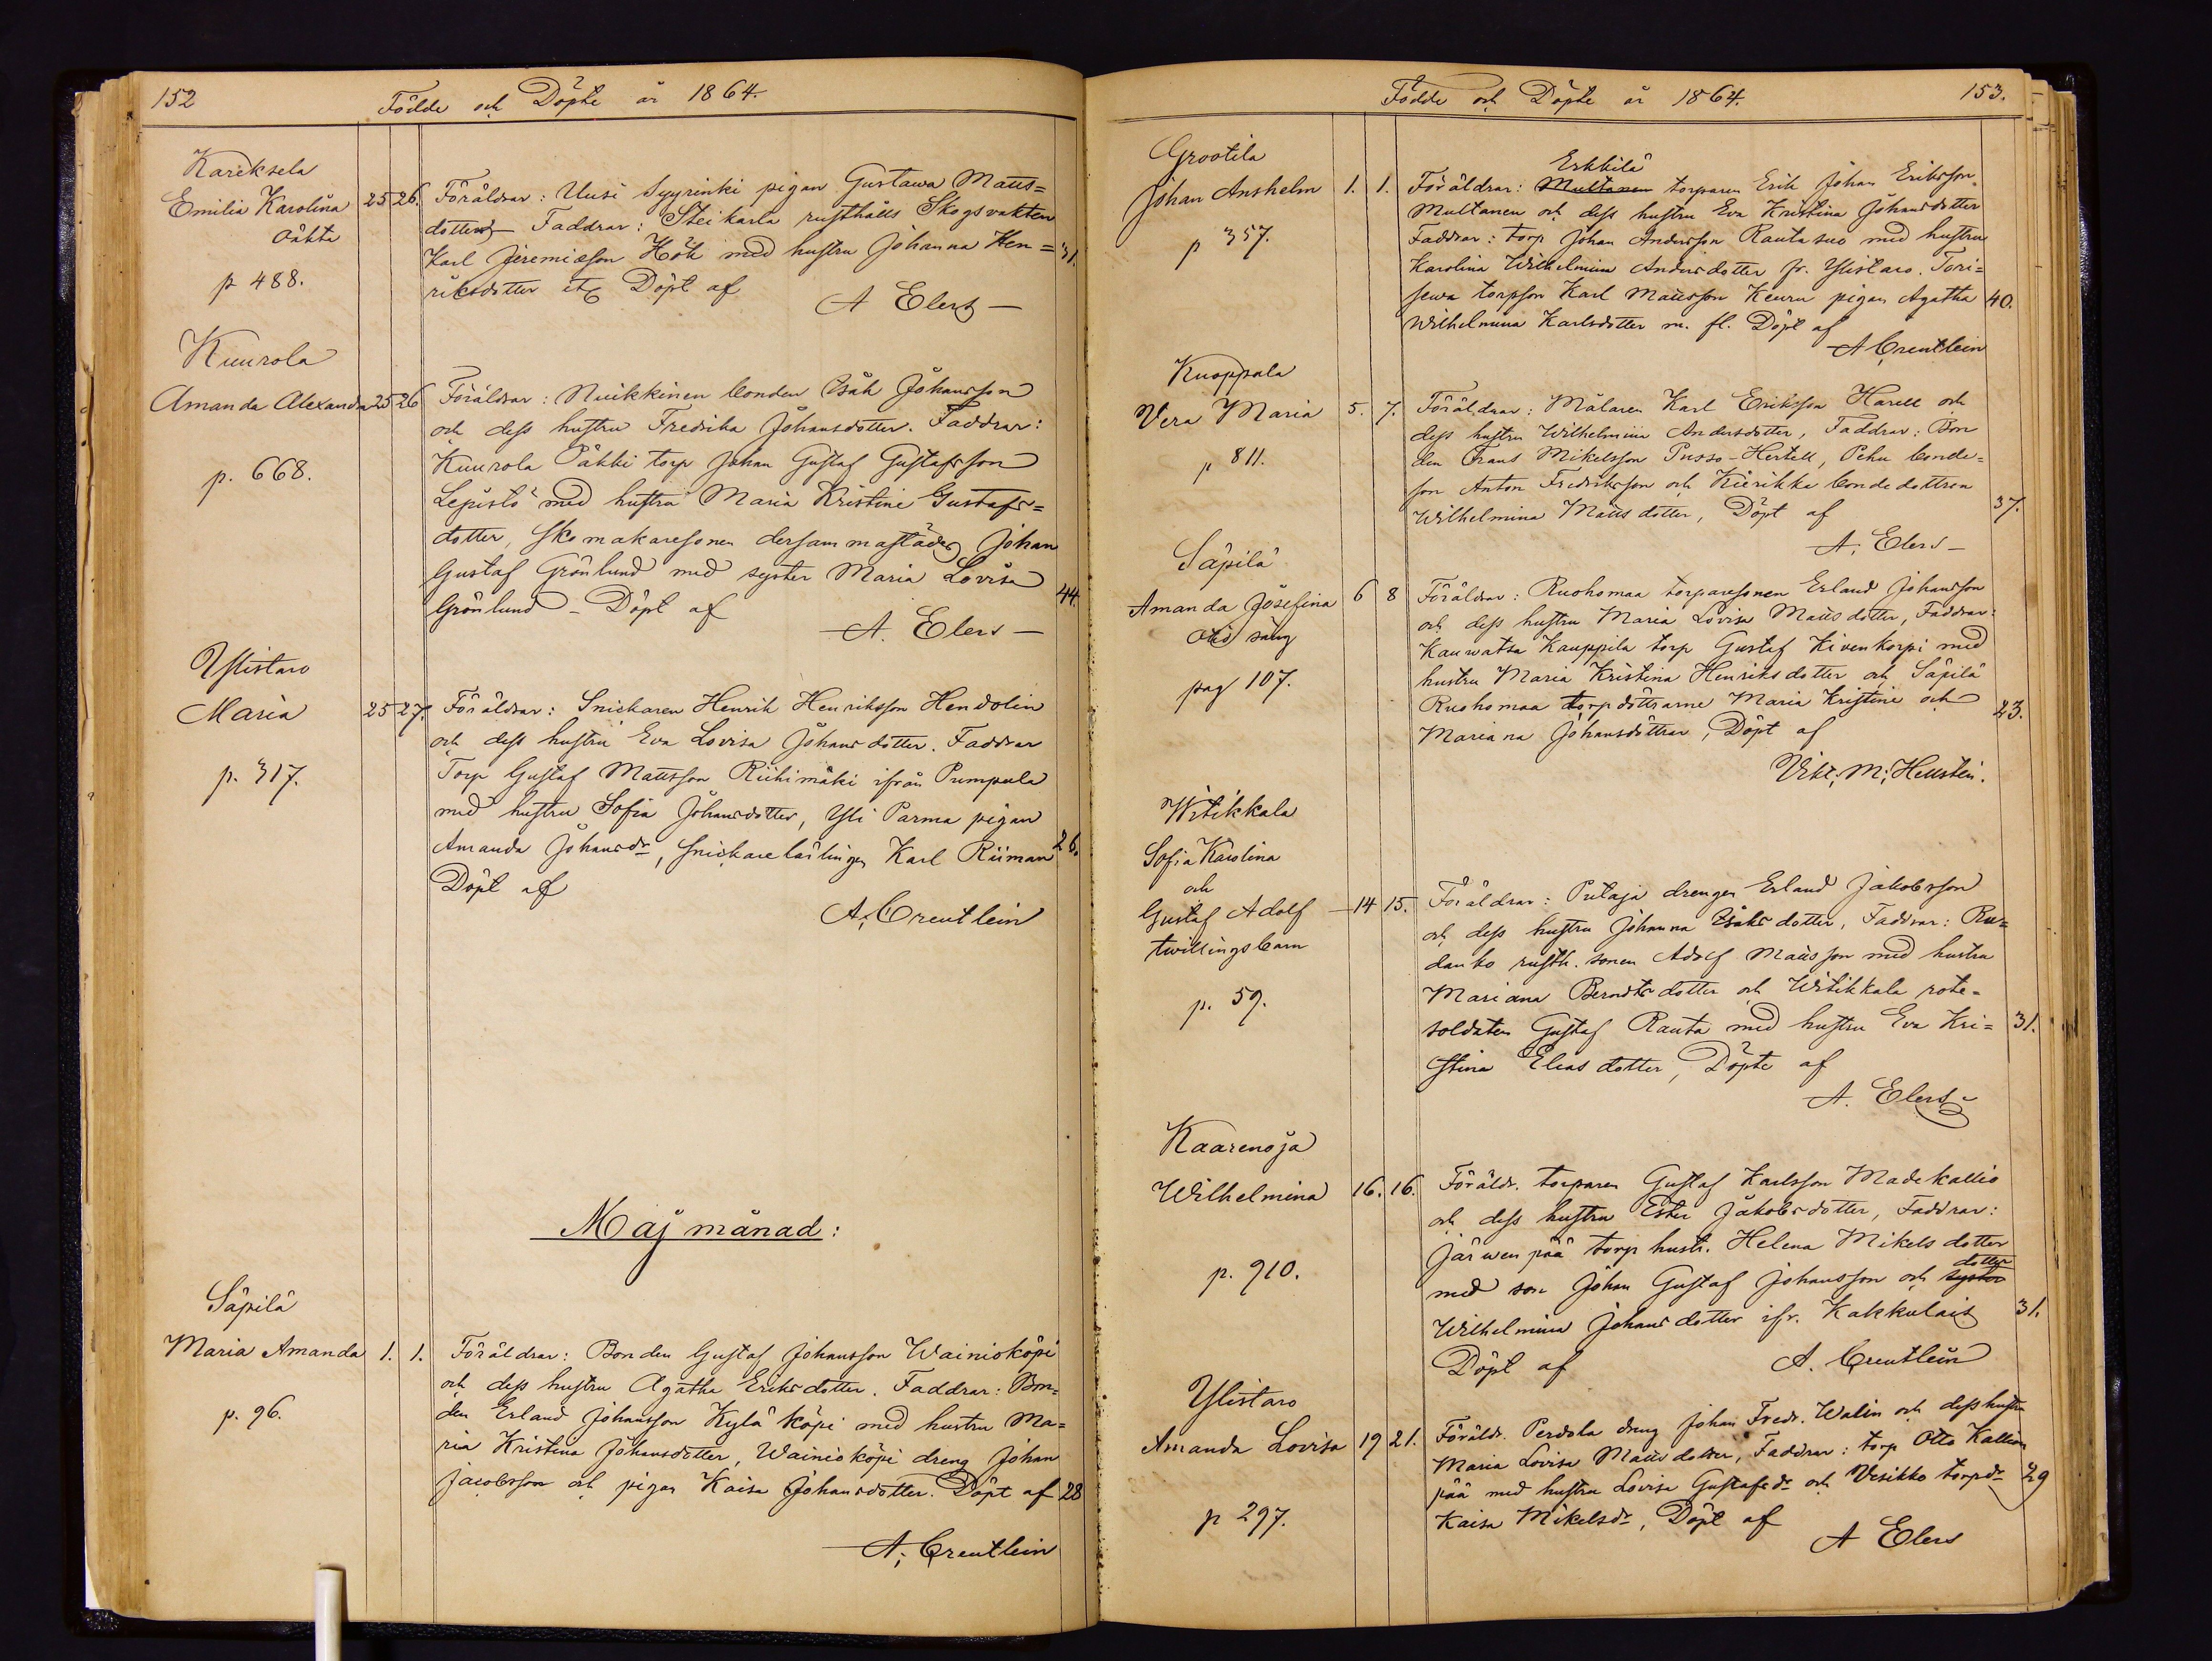 152
Födde och Döpte år 1864.
Kareksela
Emilia Karolina 25 26. Föräldrar: Uusi Syyrinki pigan Gustawa Matts=
oäkta dotter Faddrar: Steikarla rusthålls Skogsvakten
Karl Jeremiæson Hök med hustru Johanna Hen= 31.
p 488. riksdotter etc Döpt af
A Elers
Kuurola
Amanda Alexandra 25 26 Föräldrar: Nuikkinen bonden Isak Johansson
och dess hustru Fredrika Johansdotter. Faddrar:
Kuurola Päkki torp Johan Gustaf Gustafsson
p. 668. Lepistö med hustru Maria Kristine Gustafs=
dotter, skomakaresonen dersammastädes Johan
Gustaf Grönlund med syster Maria Lovisa 44.
Grönlund - Döpt af
A. Elers
Ylistaro
Maria 25 27. Föräldrar: Snickaren Henrik Henriksson Hendolin
och dess hustru Eva Lovisa Johansdotter. Faddrar
p. 317. Torp Gustaf Mattsson Riihimäki ifrån Pumpula
med hustru Sofia Johansdotter, Yli Parma pigan
Amanda Johansdr, snickarelärlingen Karl Riiman 26.
Döpt af
A. Creutlein
Maj månad:
Säpilä
Maria Amanda 1. 1. Föräldrar: Bonden Gustaf Johansson Wainioköpi
och dess hustru Agatha Eriksdotter. Faddrar: Bon=
p. 96. den Erland Johansson Kyläköpi med hustru Ma=
ria Kristina Johansdotter, Wainioköpi dreng Johan
Jacobsson och pigan Kaisa Johansdotter. Döpt af 28
A. Creutlein
Födde och Döpte år 1864.
153.
Grootila
Erkkilä
Johan Anshelm 1. 1. Föräldrar: Multanen torparen Erik Johan Eriksson
Multanen och dess hustru Eva Kristina Johansdotter
p 357. Faddrar: torp Johan Andersson Rautasuo med hustru
Karolina Wilhelmina Andersdotter fr. Ylistaro. Tori=
sewa torpson Karl Mattsson Keuru pigan Agatha 40.
Wilhelmina Karlsdotter m. fl. Döpt af
A Creutlein
Kuoppala
Vera Maria 5. 7. Föräldrar: Målaren Karl Eriksson Harell och
dess hustru Wilhelmina Andersdotter, Faddrar: Bon
p 811. den Frans Mikelsson Pusso-Hertell, Pehu bonde=
son Anton Fredriksson och Kierikka bondedottren
Wilhelmina Mattsdotter, Döpt af 37.
A. Elers
Säpilä
Amanda Josefina 6 8 Föräldrar: Ruohomaa torparesonen Erland Johansson
och dess hustru Maria Lovisa Mattsdotter, Faddrar:
Kauwatsa Kauppila torp Gustaf Kivenkorpi med
pag 107. hustru Maria Kristina Henriksdotter och Säpilä
Ruohomaa torpdöttrarne Maria Kristine och 23.
Mariana Johansdöttrar, Döpt af
Vikt. M. Hellstén.
Witikkala
Sofia Karolina
och
Gustaf Adolf 14 15. Föräldrar: Putaja drengen Erland Jakobsson
twillingsbarn och dess hustru Johanna Isaksdotter, Faddrar: Ru=
danko rusth. sonen Adolf Mattsson med hustru
p. 59. Mariana Berndtsdotter och Witikkala rote=
soldaten Gustaf Rauta med hustru Eva Kri= 31.
stina Eliasdotter, Döpte af
A. Elers
Kaarenoja
Wilhelmina 16. 16. Föräldr. torparen Gustaf Karlsson Madekallio
och dess hustru Ester Jakobsdotter, Faddrar:
Järwenpää torp hustr. Helena Mikelsdotter
dotter
p. 910. med son Johan Gustaf Johansson och syster
Wilhelmina Johansdotter ifr. Kakkulais 31.
Döpt af A. Creutlein
Ylistaro
Amanda Lovisa 19 21. Föräldr. Perdola dreng Johan Fredr. Walin och dess hustru
Maria Lovisa Mattsdotter, Faddrar: torp Otto Kallion
pää med hustru Lovisa Gustafsdr och Visikko torpdr 29
p 297. Kaisa Mikelsdr, Döpt af
A Elers